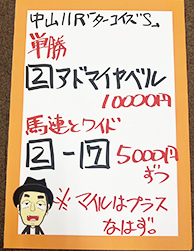 中山11R「ターコイズS」
単勝
②アドマイヤベル
10000円
馬連とワイド
②-⑦ 5000円
ずつ
※マイルはプラス
なはず。